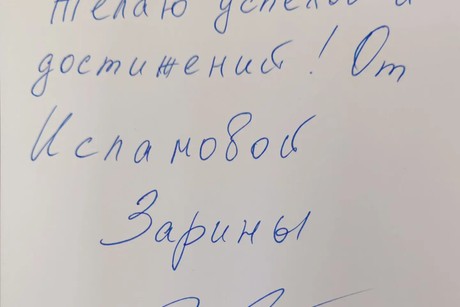 Желаю успехов и
достижений! От
Исламовой
Зарины